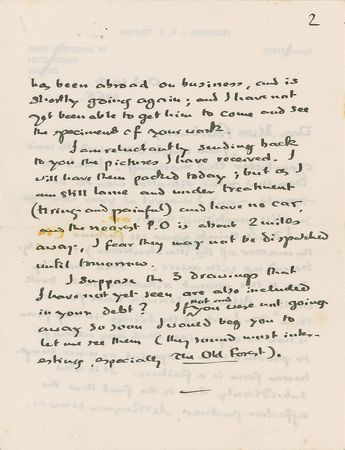 2
has been abroad on business, and is
shortly going again; and I have not
yet been able to get him to come and see
the specimens of your work.
I am reluctantly sending back
to you the pictures I have received. I
will have them packed today; but as I
am still lame and under treatment
(tiring and painful) and have no car,
and the nearest P.O is about 2 miles
away, I fear they may not be dispatched
until tomorrow.
I suppose the 3 drawings that
I have not yet seen are also included
in your debt? If you were not going
away so soon I would beg you to
let me see them (they sound most inter-
esting, especially The Old Forest).